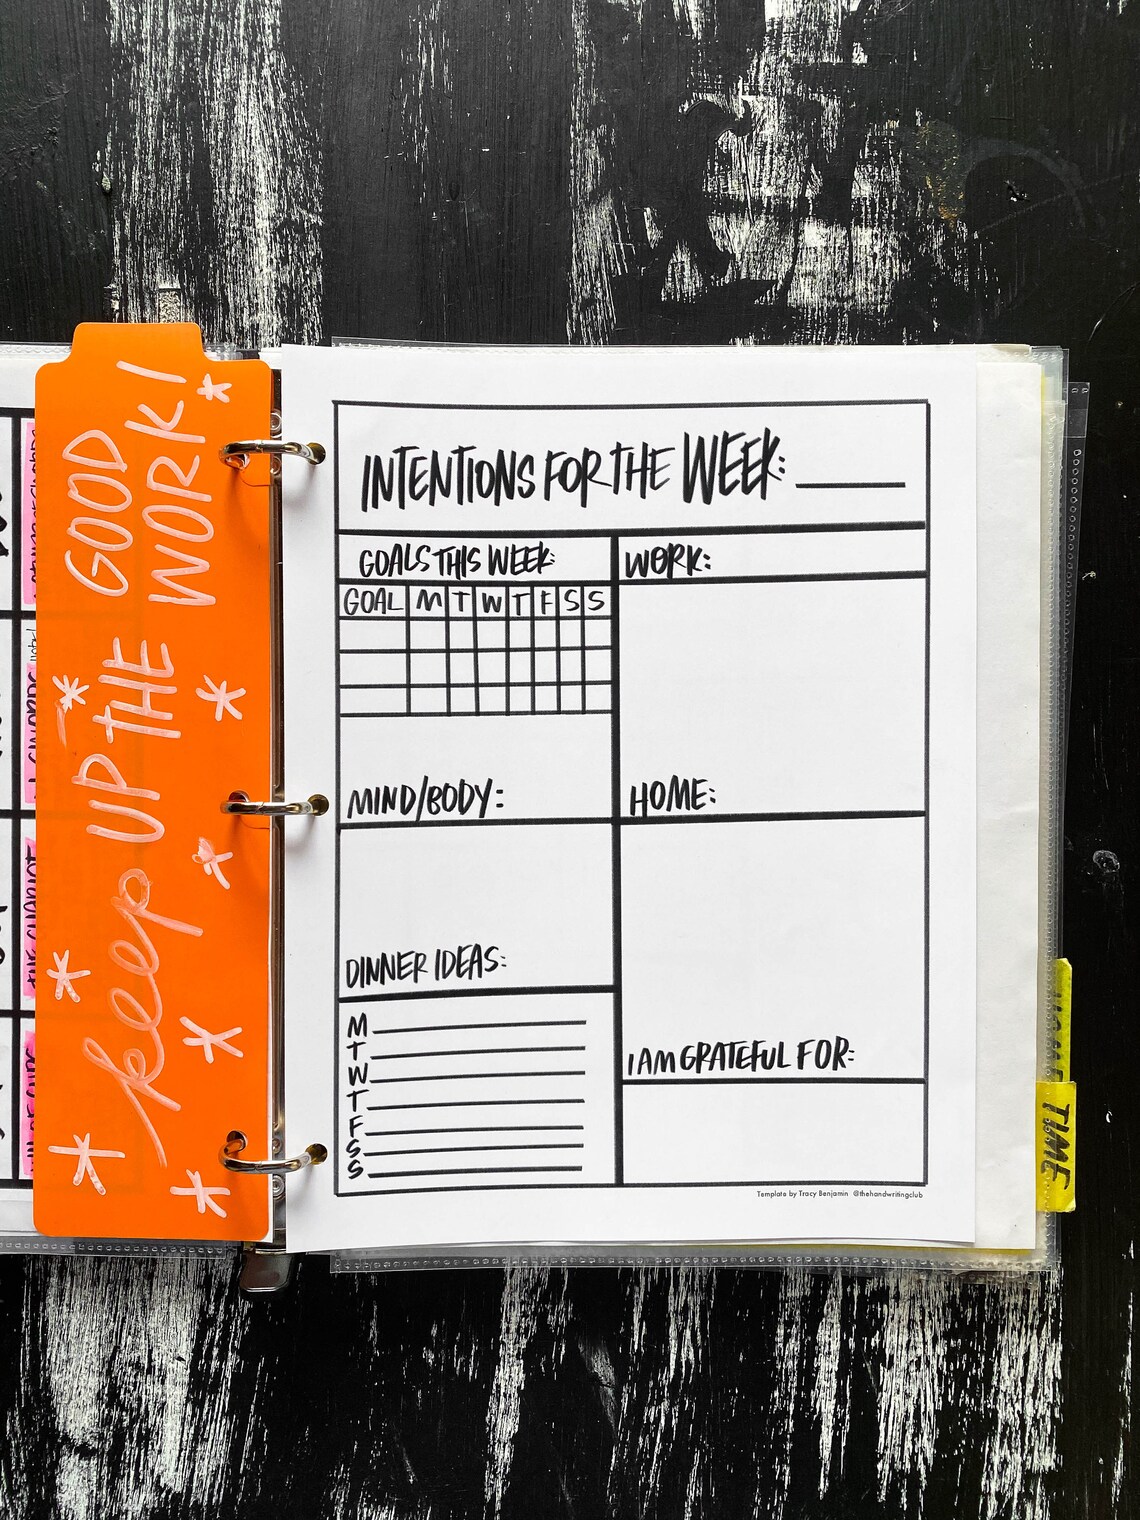 keep UP THE GOOD
WORK!
INTENTIONS FOR THE WEEK:
GOALS THIS WEEK:
GOAL M T W T F S S
MIND/BODY:
DINNER IDEAS:
M
T
W
T
F
S
S
WORK:
HOME:
I AM GRATEFUL FOR:
Template by Tracy Benjamin @thehandwritingclub
TIME